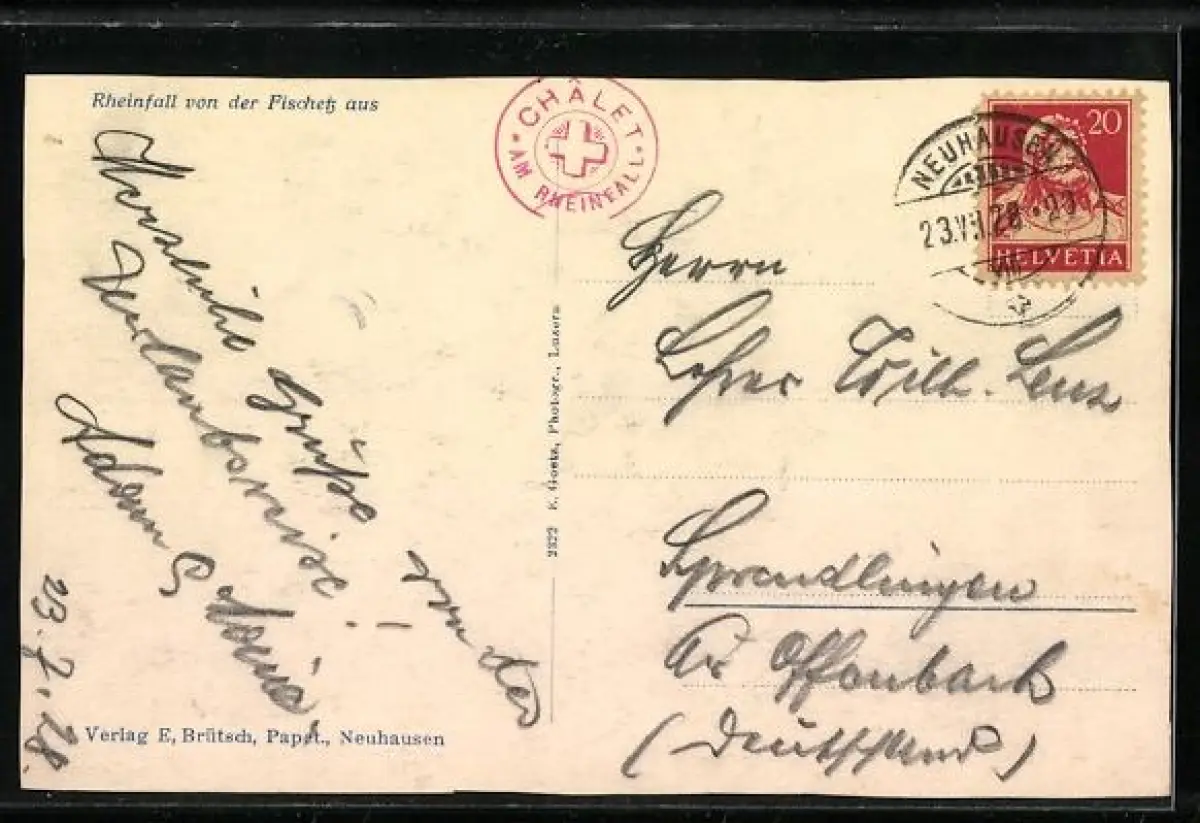 Rheinfall von der Fischetz aus
CHÂLET
AM RHEINFALL
NEUHAUSEN
20
HELVETIA
Herzliche Grüße von der
Urlaubsreise!
Adam &
23.7.28.
Herrn
Lehrer Wilh. Lenz
Sprendlingen
Kr. Offenbach
(Deutschland)
2322 E. Goetz, Photogr., Luzern
Verlag E. Brütsch, Papet., Neuhausen